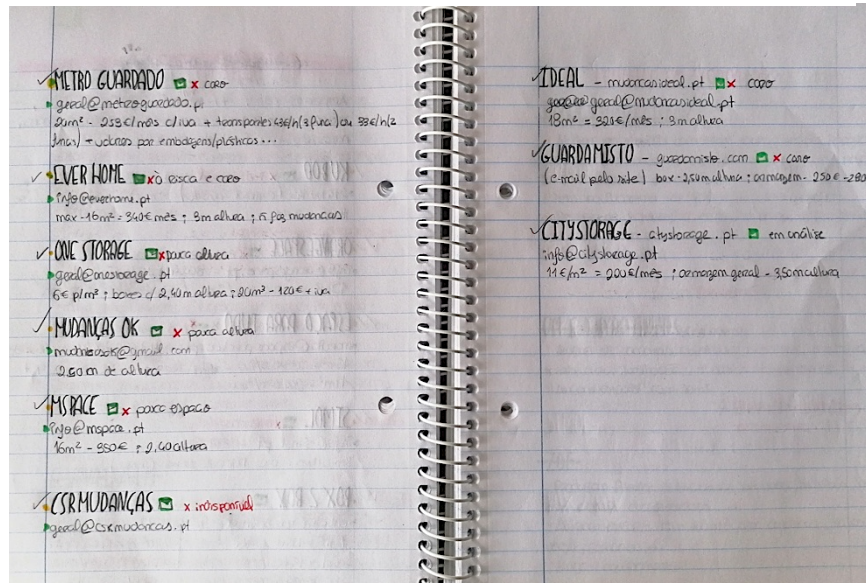 METRO GUARDADO x caro
geral@metroguardado.pt
20m² - 253€/mês c/iva + transportes 43€/h (3 func) ou 33€/h (2
func) + valores por embalagens/plásticos...
EVER HOME x à risca e caro
info@everhome.pt
max - 16m² = 340€ mês ; 3m altura ; ñ faz mudanças
ONE STORAGE x pouca altura
geral@onestorage.pt
6€ p/m² ; boxes c/ 2,40m altura ; 20m² - 120€ + iva
MUDANÇAS OK x pouca altura
mudancasok@gmail.com
2.50m de altura
MSPACE x pouco espaço
info@mspace.pt
16m² - 350€ ; 2,40 altura
CSR MUDANÇAS x indisponível
geral@csrmudancas.pt
IDEAL - mudancasideal.pt x caro
geral@mudancasideal.pt
18m² = 320€/mês ; 3m altura
GUARDAMISTO - guardamisto.com x caro
(e-mail pelo site) box - 2,50m altura ; armazem - 250€ - 280
CITYSTORAGE - citystorage.pt em análise
info@citystorage.pt
11€/m² = 200€/mês ; armazem geral - 3,50m altura